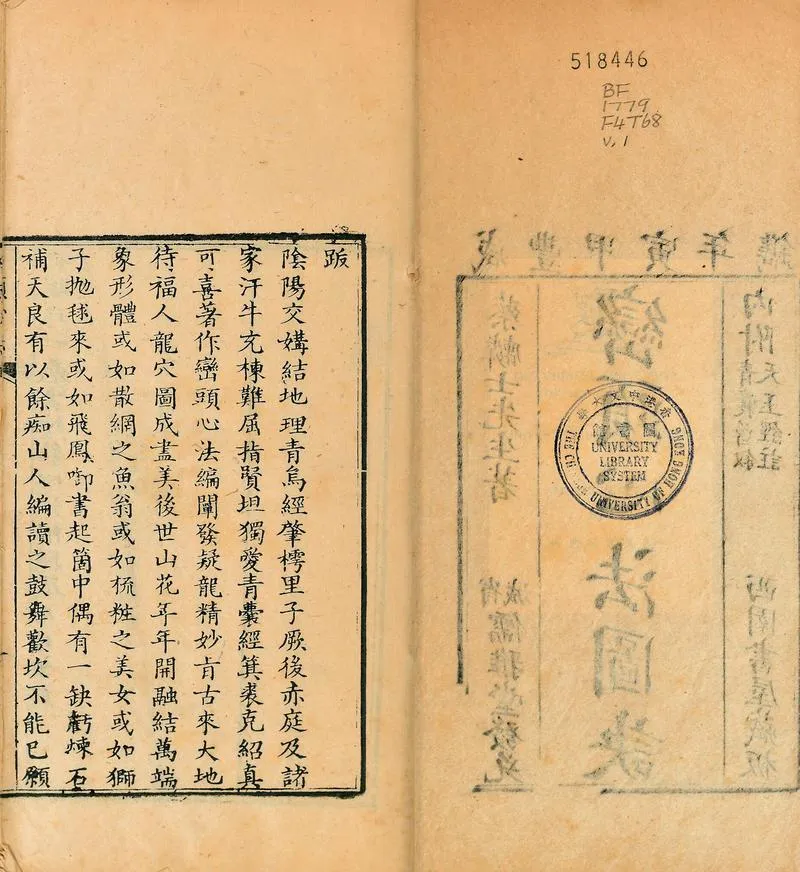 518446
BF
1779
F4T68
v.1
咸豐甲寅年鐫
先生著
法圖訣
內附天玉經註
西園書屋藏板
UNIVERSITY
LIBRARY
SYSTEM
跋
陰陽交媾結地理青烏經肇樗里子厥後赤庭及諸
家汗牛充棟難屈指賢坦獨愛青囊經箕裘克紹真
可喜著作巒頭心法編闡發疑龍精妙旨古來大地
待福人龍穴圖成盡美後世山花年年開融結萬端
象形體或如散網之魚翁或如梳粧之美女或如獅
子拋毬來或如飛鳳啣書起箇中偶有一缺虧煉石
補天良有以餘痴山人編讀之鼓舞歡坎不能已願